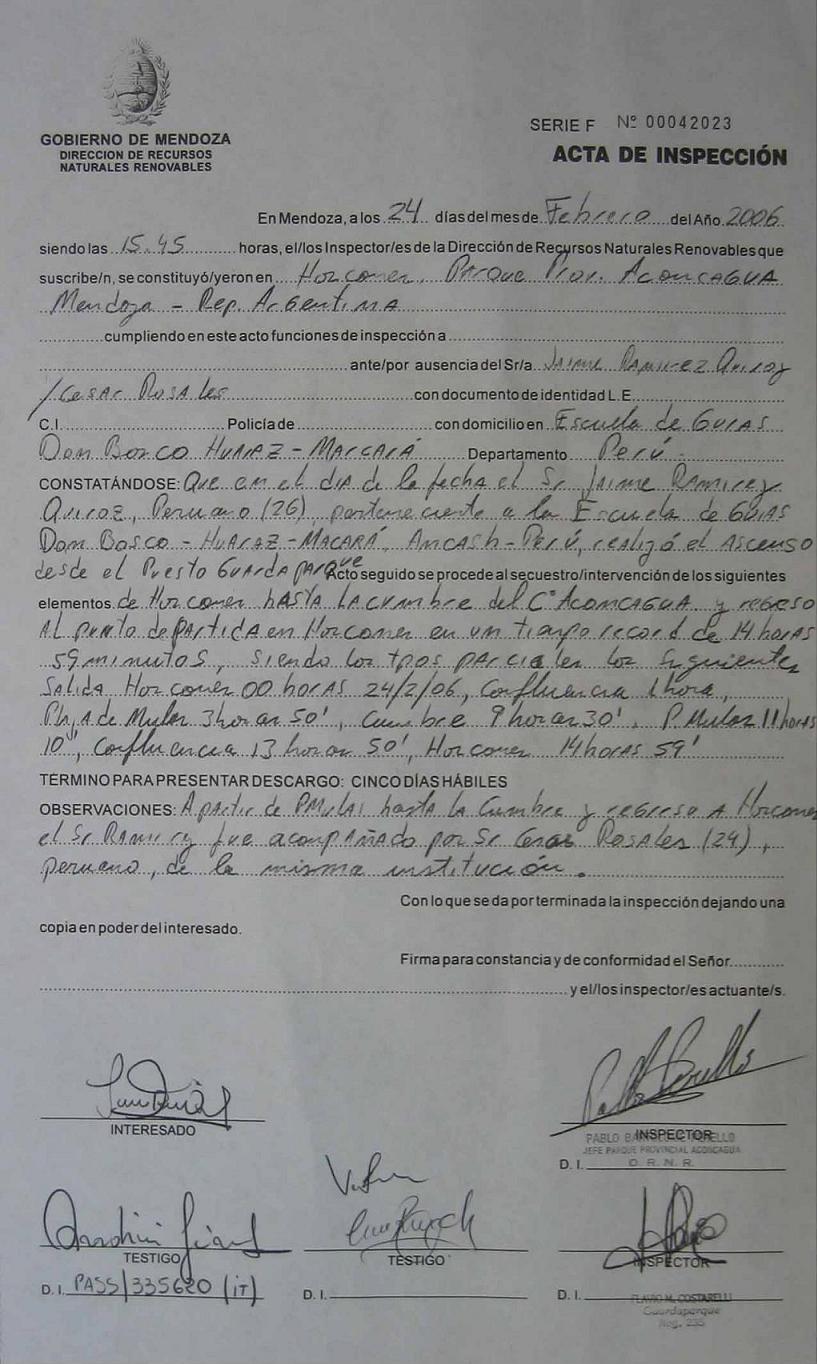 GOBIERNO DE MENDOZA
DIRECCION DE RECURSOS
NATURALES RENOVABLES
SERIE F Nº 00042023
ACTA DE INSPECCIÓN
En Mendoza, a los 24 días del mes de Febrero del Año 2006
siendo las 15.45 horas, el/los Inspector/es de la Dirección de Recursos Naturales Renovables que
suscribe/n, se constituyó/yeron en Horcones, Parque Prov. Aconcagua
Mendoza - Rep. Argentina
cumpliendo en este acto funciones de inspección a
ante/por ausencia del Sr/a Jaime Ramirez Quiroz
/Cesar Rosales con documento de identidad L.E.
C.I. Policía de con domicilio en Escuela de Guías
Don Bosco Huaraz - Marcará Departamento Perú -
CONSTATÁNDOSE: Que en el día de la fecha el Sr Jaime Ramirez
Quiroz, Peruano (26), perteneciente a la Escuela de Guías
Don Bosco - Huaraz - Macará, Ancash - Perú, realizó el Ascenso
desde el Puesto Guardaparque Acto seguido se procede al secuestro/intervención de los siguientes
elementos de Horcones hasta la cumbre del Cº Aconcagua y regreso
al punto de partida en Horcones en un tiempo record de 14 horas
59 minutos, siendo los tpos parciales los siguientes
Salida Horcones 00 horas 24/2/06, Confluencia 1 hora,
Plaza de Mulas 3 horas 50', Cumbre 9 horas 30', P. Mulas 11 horas
10', Confluencia 13 horas 50', Horcones 14 horas 59'
TERMINO PARA PRESENTAR DESCARGO: CINCO DÍAS HÁBILES
OBSERVACIONES: A partir de P Mulas hasta la Cumbre y regreso a Horcones
el Sr Ramirez fue acompañado por Sr Cesar Rosales (24),
peruano, de la misma institución.
Con lo que se da por terminada la inspección dejando una
copia en poder del interesado.
Firma para constancia y de conformidad el Señor
y el/los inspector/es actuante/s.
INTERESADO
INSPECTOR
PABLO PERELLO
JEFE PARQUE PROVINCIAL ACONCAGUA
D. I. D. R. N. R.
TESTIGO
TESTIGO
INSPECTOR
D. I. PASS/335620 (IT)
D. I.
D. I. FLAVIO M. COSTARELLI
Guardaparque
Reg. 235